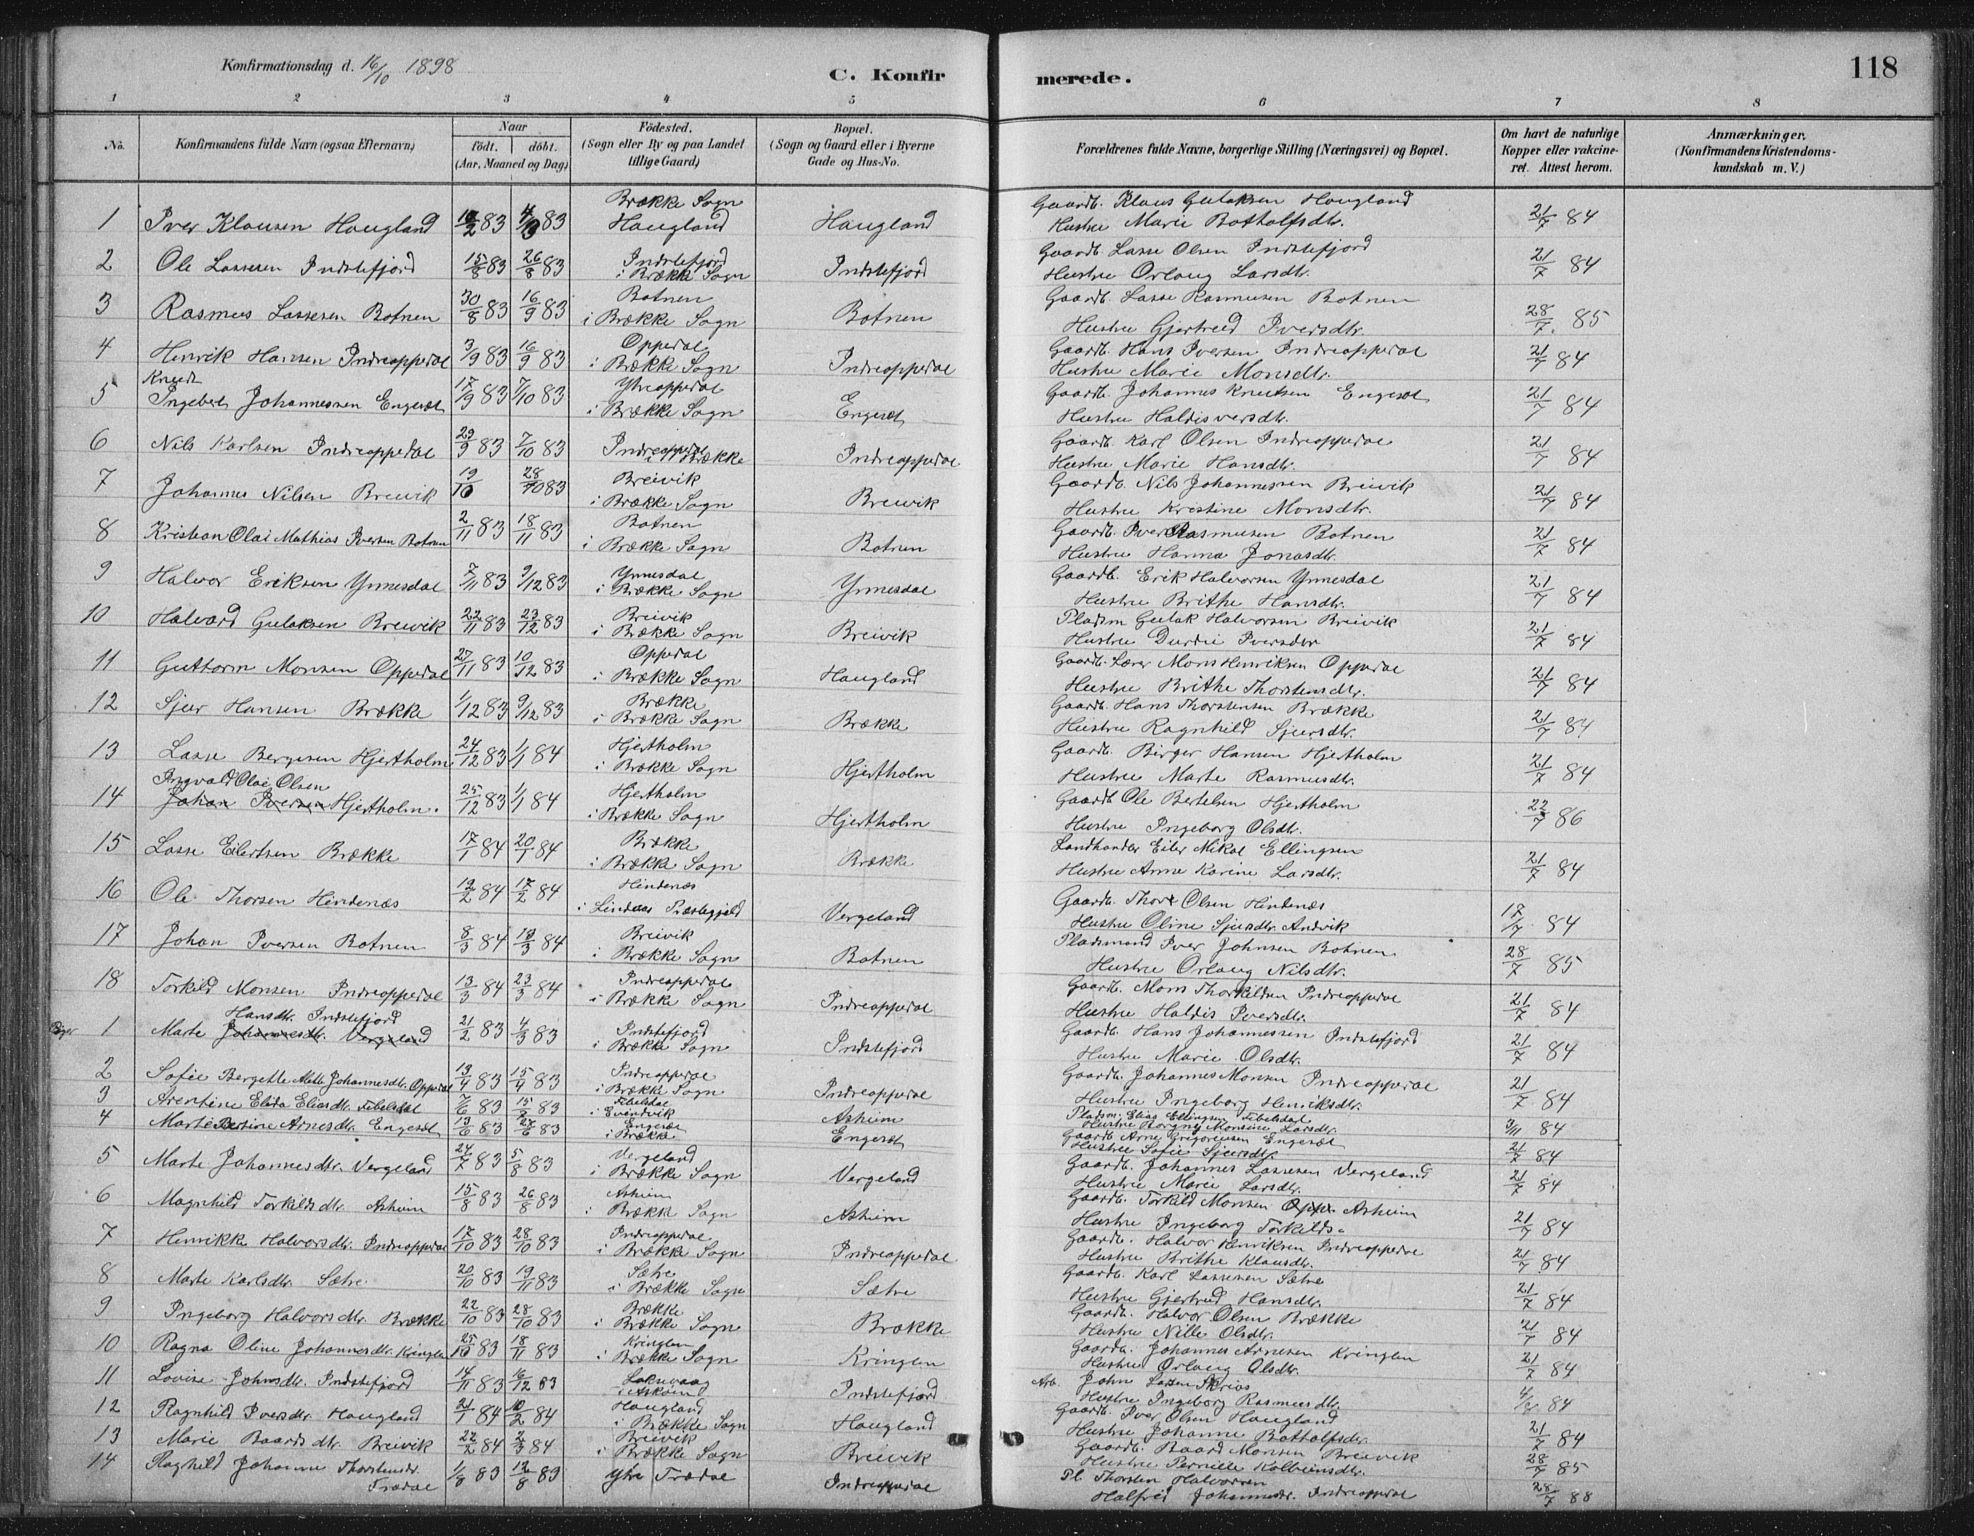 Konfirmationsdag d. 16/10 1898
C. Konfirmerede.
118
1 2 3 4 5 6 7 8
No.
Konfirmandens fulde Navn (ogsaa Efternavn)
Naar født. døbt. (Aar, Maaned og Dag)
Födested. (Sogn eller By og paa Landet tillige Gaard)
Bopæl. (Sogn og Gaard eller i Byerne Gade og Hus-No.
Forældrenes fulde Navne, borgerlige Stilling (Næringsvei) og Bopæl.
Om havt de naturlige Kopper eller vakcineret. Attest herom.
Anmærkninger. (Konfirmandens Kristendomskundskab m. V.)
1 Iver Klausen Haugland 83 83 Brække Sogn Haugland Haugland Gaardb. Klaus Gulaksen Haugland Hustru Marie Botholfsdtr. 21/7 84
2 Ole Lassesen Indstefjord 15/8 83 26/8 83 Indstefjord i Brække Sogn Indstefjord Gaardb. Lasse Olsen Indstefjord Hustru Orlaug Larsdtr. 21/7 84
3 Rasmus Lassesen Botnen 30/8 83 16/9 83 Botnen i Brække Sogn Botnen Gaardb. Lasse Rasmusen Botnen Hustru Gjertrud Iversdtr. 28/7 85
4 Henrik Hansen Indreoppedal 3/9 83 16/9 83 Oppedal i Brække Sogn Indreoppedal Gaardb. Hans Iversen Indreoppedal Hustru Marie Monsdtr. 21/7 84
5 Knud Ingebert Johannessen Engesæt 17/9 83 7/10 83 Ytreoppedal i Brække Sogn Engesæt Gaardb. Johannes Knutsen Engesæt Hustru Haldis 21/7 84
6 Nils Karlsen Indreoppedal 29/9 83 7/10 83 Indreoppedal i Brække Indreoppedal Gaardb. Karl Olsen Indreoppedal Hustru Marie Hansdtr. 21/7 84
7 Johannes Nilsen Breivik 19/10 28/10 83 Breivik i Brække Sogn Breivik Gaardb. Nils Johannessen Breivik Hustru Kristine Monsdtr. 21/7 84
8 Kristian Olai Mathias Iversen Botnen 2/11 83 18/11 83 Botnen i Brække Sogn Botnen Gaardb. Iver Rasmusen Botnen Hustru Hanna Jonasdtr. 21/7 84
9 Halvor Eriksen Ynnesdal 7/11 83 9/12 83 Ynnesdal i Brække Sogn Ynnesdal Gaardb. Erik Halvorsen Ynnesdal Hustru Brithe Hansdtr. 21/7 84
10 Halvard Gulaksen Breivik 22/11 83 23/12 83 Breivik i Brække Sogn Breivik Pladsm Gulak Halvorsen Breivik Hustru Durdei Iversdtr 21/7 84
11 Guttorm Monsen Oppedal 27/11 83 10/12 83 Oppedal i Brække Sogn Haugland Gaardb. Lærer Mons Henriksen Oppedal Hustru Brithe Thorstensdtr. 21/7 84
12 Sjur Hansen Brække 1/12 83 9/12 83 Brække i Brække Sogn Brække Gaardb. Hans Thorstensen Brække Hustru Ragnhild Sjursdtr. 21/7 84
13 Lasse Bergesen Hjertholm 24/12 83 1/1 84 Hjertholm i Brække Sogn Hjertholm Gaardb. Birger Hansen Hjertholm Hustru Marte Rasmusdtr. 21/7 84
14 Ingvald Olai Olsen Johan Iversen Hjertholm. 25/12 83 1/1 84 Hjertholm i Brække Sogn Hjertholm Gaardb Ole Bertelsen Hjertholm Hustru Ingeborg Olsdtr. 22/7 86
15 Lasse Eilertsen Brække 17/1 84 20/1 84 Brække i Brække Sogn Brække Landhandler Eiler Mikal Ellingsen Hustru Anne Karine Larsdtr. 21/7 84
16 Ole Thorsen Hindenæs 12/2 84 17/2 84 Hindenæs i Lindaas Præstegjeld Vergeland Gaardb. Thor Olsen Hindenæs Hustru Oline Sjursdtr. Andvik 17/7 84
17 Johan Iversen Botnen 8/3 84 84 Breivik i Brække Sogn Botnen Pladsmand Iver Johnsen Botnen Hustru Orlaug Nilsdtr. 28/7 85
18 Torkild Monsen Indreoppedal 13/3 84 23/3 84 Indreoppedal i Brække Sogn Indreoppedal Gaardb. Mons Thorkildsen Indreoppedal Hustru Haldis Iversdtr. 21/7 84
Piger 1 Marte Hansdtr. Indstefjord Johannesdtr. Vergeland 21/2 83 4/3 83 Indstefjord i Brække Sogn Indstefjord Gaardb. Hans Johannessen Indstefjord Hustru Marie Olsdtr. 21/7 84
2 Sofie Bergette Mette Johannesdtr. Oppedal 13/4 83 15/4 83 Indreoppedal i Brække Sogn Indreoppedal Gaardb. Johannes Monsen Indreoppedal Hustru Ingeborg Henriksdtr. 21/7 84
3 Arentine Elida Eliasdtr. Tibeldal 7/6 83 15/7 83 i Evendvik Asheim Pladsm. Elias Ellingsen Tibeldal Hustru Monsine Larsdtr. 3/11 84
4 Marte Bertine Arnesdtr. Engesæt 13/6 83 27/6 83 Engesæt i Brække Engesæt Gaardb. Arne Grigoriusen Engesæt Hustru Sofie Sjursdtr. 21/7 84
5 Marte Johannesdtr. Vergeland 24/7 83 5/8 83 Vergeland i Brække Sogn Vergeland Gaardb. Johannes Lassesen Vergeland Hustru Marie Larsdtr. 21/7 84
6 Magnhild Torkildsdtr. Asheim 15/8 83 26/8 83 Asheim i Brække Sogn Asheim Gaardb. Torkild Monsen Asheim Hustru Ingeborg Torkilds 21/7 84
7 Henrikke Halvorsdtr. Indreoppedal 17/10 83 28/10 83 Indreoppedal i Brække Sogn Indreoppedal Gaardb. Halvor Henriksen Indreoppedal Hustru Brithe Klausdtr. 21/7 84
8 Marte Karlsdtr. Sætre 20/10 83 19/11 83 Sætre i Brække Sogn Sætre Gaardb. Karl Lassesen Sætre Hustru Gjertrud Hansdtr. 21/7 84
9 Ingeborg Halvorsdtr. Brække 22/10 83 28/10 83 Brække i Brække Sogn Brække Gaardb. Halvor Olsen Brække Hustru Nille Olsdtr. 21/7 84
10 Ragna Oline Johannesdtr. Kringlen 25/10 83 18/11 83 Kringlen i Brække Sogn Kringlen Gaardb. Johannes Arnesen Kringlen Hustru Orlaug Olsdtr. 21/7 84
11 Lovise Johnsdtr. Indstefjord 14/11 83 16/12 83 i Askøen Indstefjord Arb. John Larsen Hustru Ingeborg Rasmusdtr. 84
12 Ragnhild Iversdtr. Haugland 21/1 84 10/2 84 Haugland i Brække Sogn Haugland Gaardb. Iver Olsen Haugland Hustru Johanne Botholfsdtr. 21/7 84
13 Marie Baardsdtr. Breivik 22/2 84 2/3 84 Breivik i Brække Sogn Breivik Gaardb. Baard Monsen Breivik Hustru Pernille Kolbeinsdtr. 28/7 85
14 Raghild Johanne Thorstensdtr. Trædal 1/8 83 12/8 83 Ytre Trædal Indreoppedal Pl. Thorsten Halvorsen Halfrid Johannesdtr. Indreoppedal 28/7 88